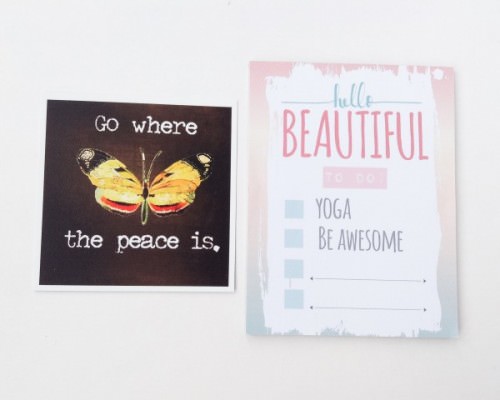 Go where
the peace is.
hello
BEAUTIFUL
TO DO:
YOGA
BE AWESOME